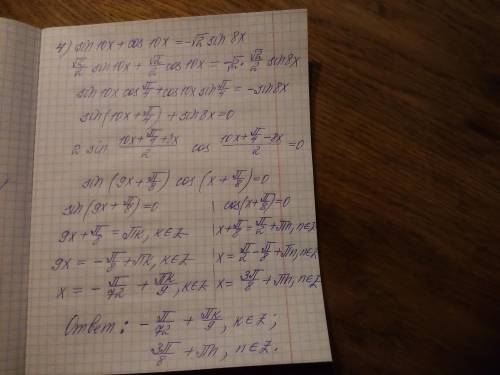 4) sin 10x + cos 10x = -√2 sin 8x
√2/2 sin 10x + √2/2 cos 10x = -√2 · √2/2 sin 8x
sin 10x cos π/4 + cos 10x sin π/4 = - sin 8x
sin(10x + π/4) + sin 8x = 0
2 sin (10x + π/4 + 8x)/2 cos (10x + π/4 - 8x)/2 = 0
sin (9x + π/8) cos (x + π/8) = 0
sin (9x + π/8) = 0 cos(x + π/8) = 0
9x + π/8 = πk, k∈Z x + π/8 = π/2 + πn, n∈Z
9x = - π/8 + πk, k∈Z x = π/2 - π/8 + πn, n∈Z
x = - π/72 + πk/9, k∈Z x = 3π/8 + πn, n∈Z
Ответ: - π/72 + πk/9, k∈Z;
3π/8 + πn, n∈Z.